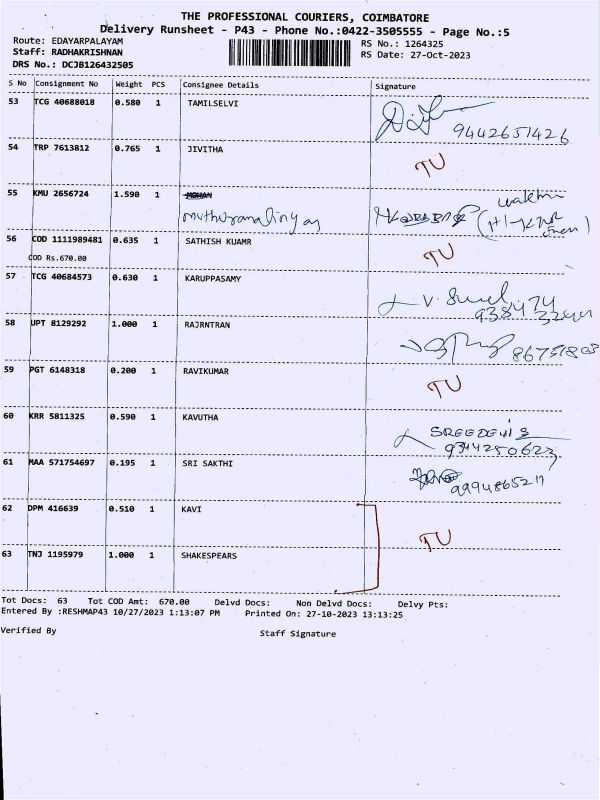 THE PROFESSIONAL COURIERS, COIMBATORE
Delivery Runsheet - P43 - Phone No.:0422-3505555 - Page No.:5
Route: EDAYARPALAYAM RS No.: 1264325
Staff: RADHAKRISHNAN RS Date: 27-Oct-2023
DRS No.: DCJB126432505
S No Consignment No Weight PCS Consignee Details Signature
53 TCG 40688018 0.580 1 TAMILSELVI
9442651426
54 TRP 7613812 0.765 1 JIVITHA TU
55 KMU 2656724 1.590 1 MOHAN
muthuramalingam
56 COD 1111989481 0.635 1 SATHISH KUAMR TU
COD Rs.670.00
57 TCG 40684573 0.630 1 KARUPPASAMY
938474
58 UPT 8129292 1.000 1 RAJRNTRAN
59 PGT 6148318 0.200 1 RAVIKUMAR TU
60 KRR 5811325 0.590 1 KAVUTHA SREEDEVI S
9344250623
61 MAA 571754697 0.195 1 SRI SAKTHI
62 DPM 416639 0.510 1 KAVI TU
63 TNJ 1195979 1.000 1 SHAKESPEARS
Tot Docs: 63 Tot COD Amt: 670.00 Delvd Docs: Non Delvd Docs: Delvy Pts:
Entered By :RESHMAP43 10/27/2023 1:13:07 PM Printed On: 27-10-2023 13:13:25
Verified By Staff Signature